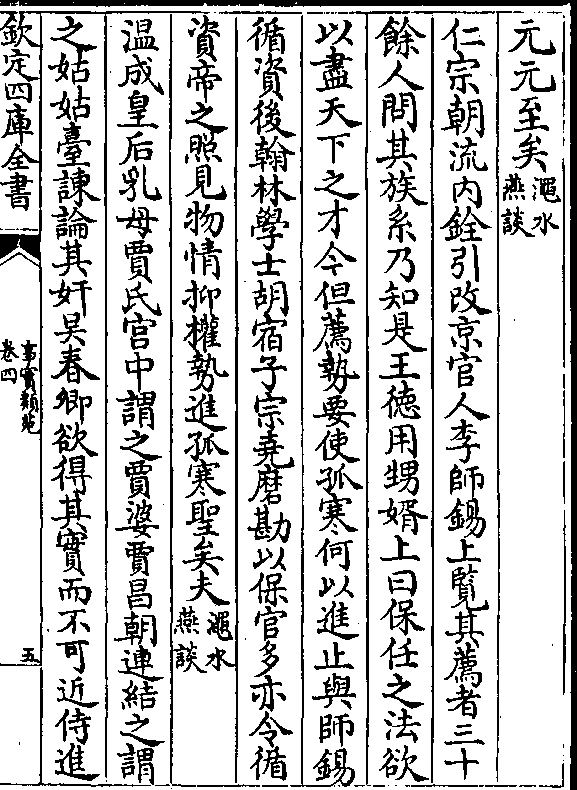 元元至矣澠水燕談
仁宗朝流内銓引改京官人李師錫上覽其薦者三十
餘人問其族系乃知是王徳用甥婿上曰保任之法欲
以盡天下之才今但薦勢要使孤寒何以進止與師錫
循資後翰林學士胡宿子宗堯磨勘以保官多亦令循
資帝之照見物情抑權勢進孤寒聖矣夫澠水燕談
温成皇后乳母賈氏宫中謂之賈婆賈昌朝連結之謂
之姑姑臺諫論其奸吴春卿欲得其實而不可近侍進
欽定四庫全書
事實類苑
卷四
五